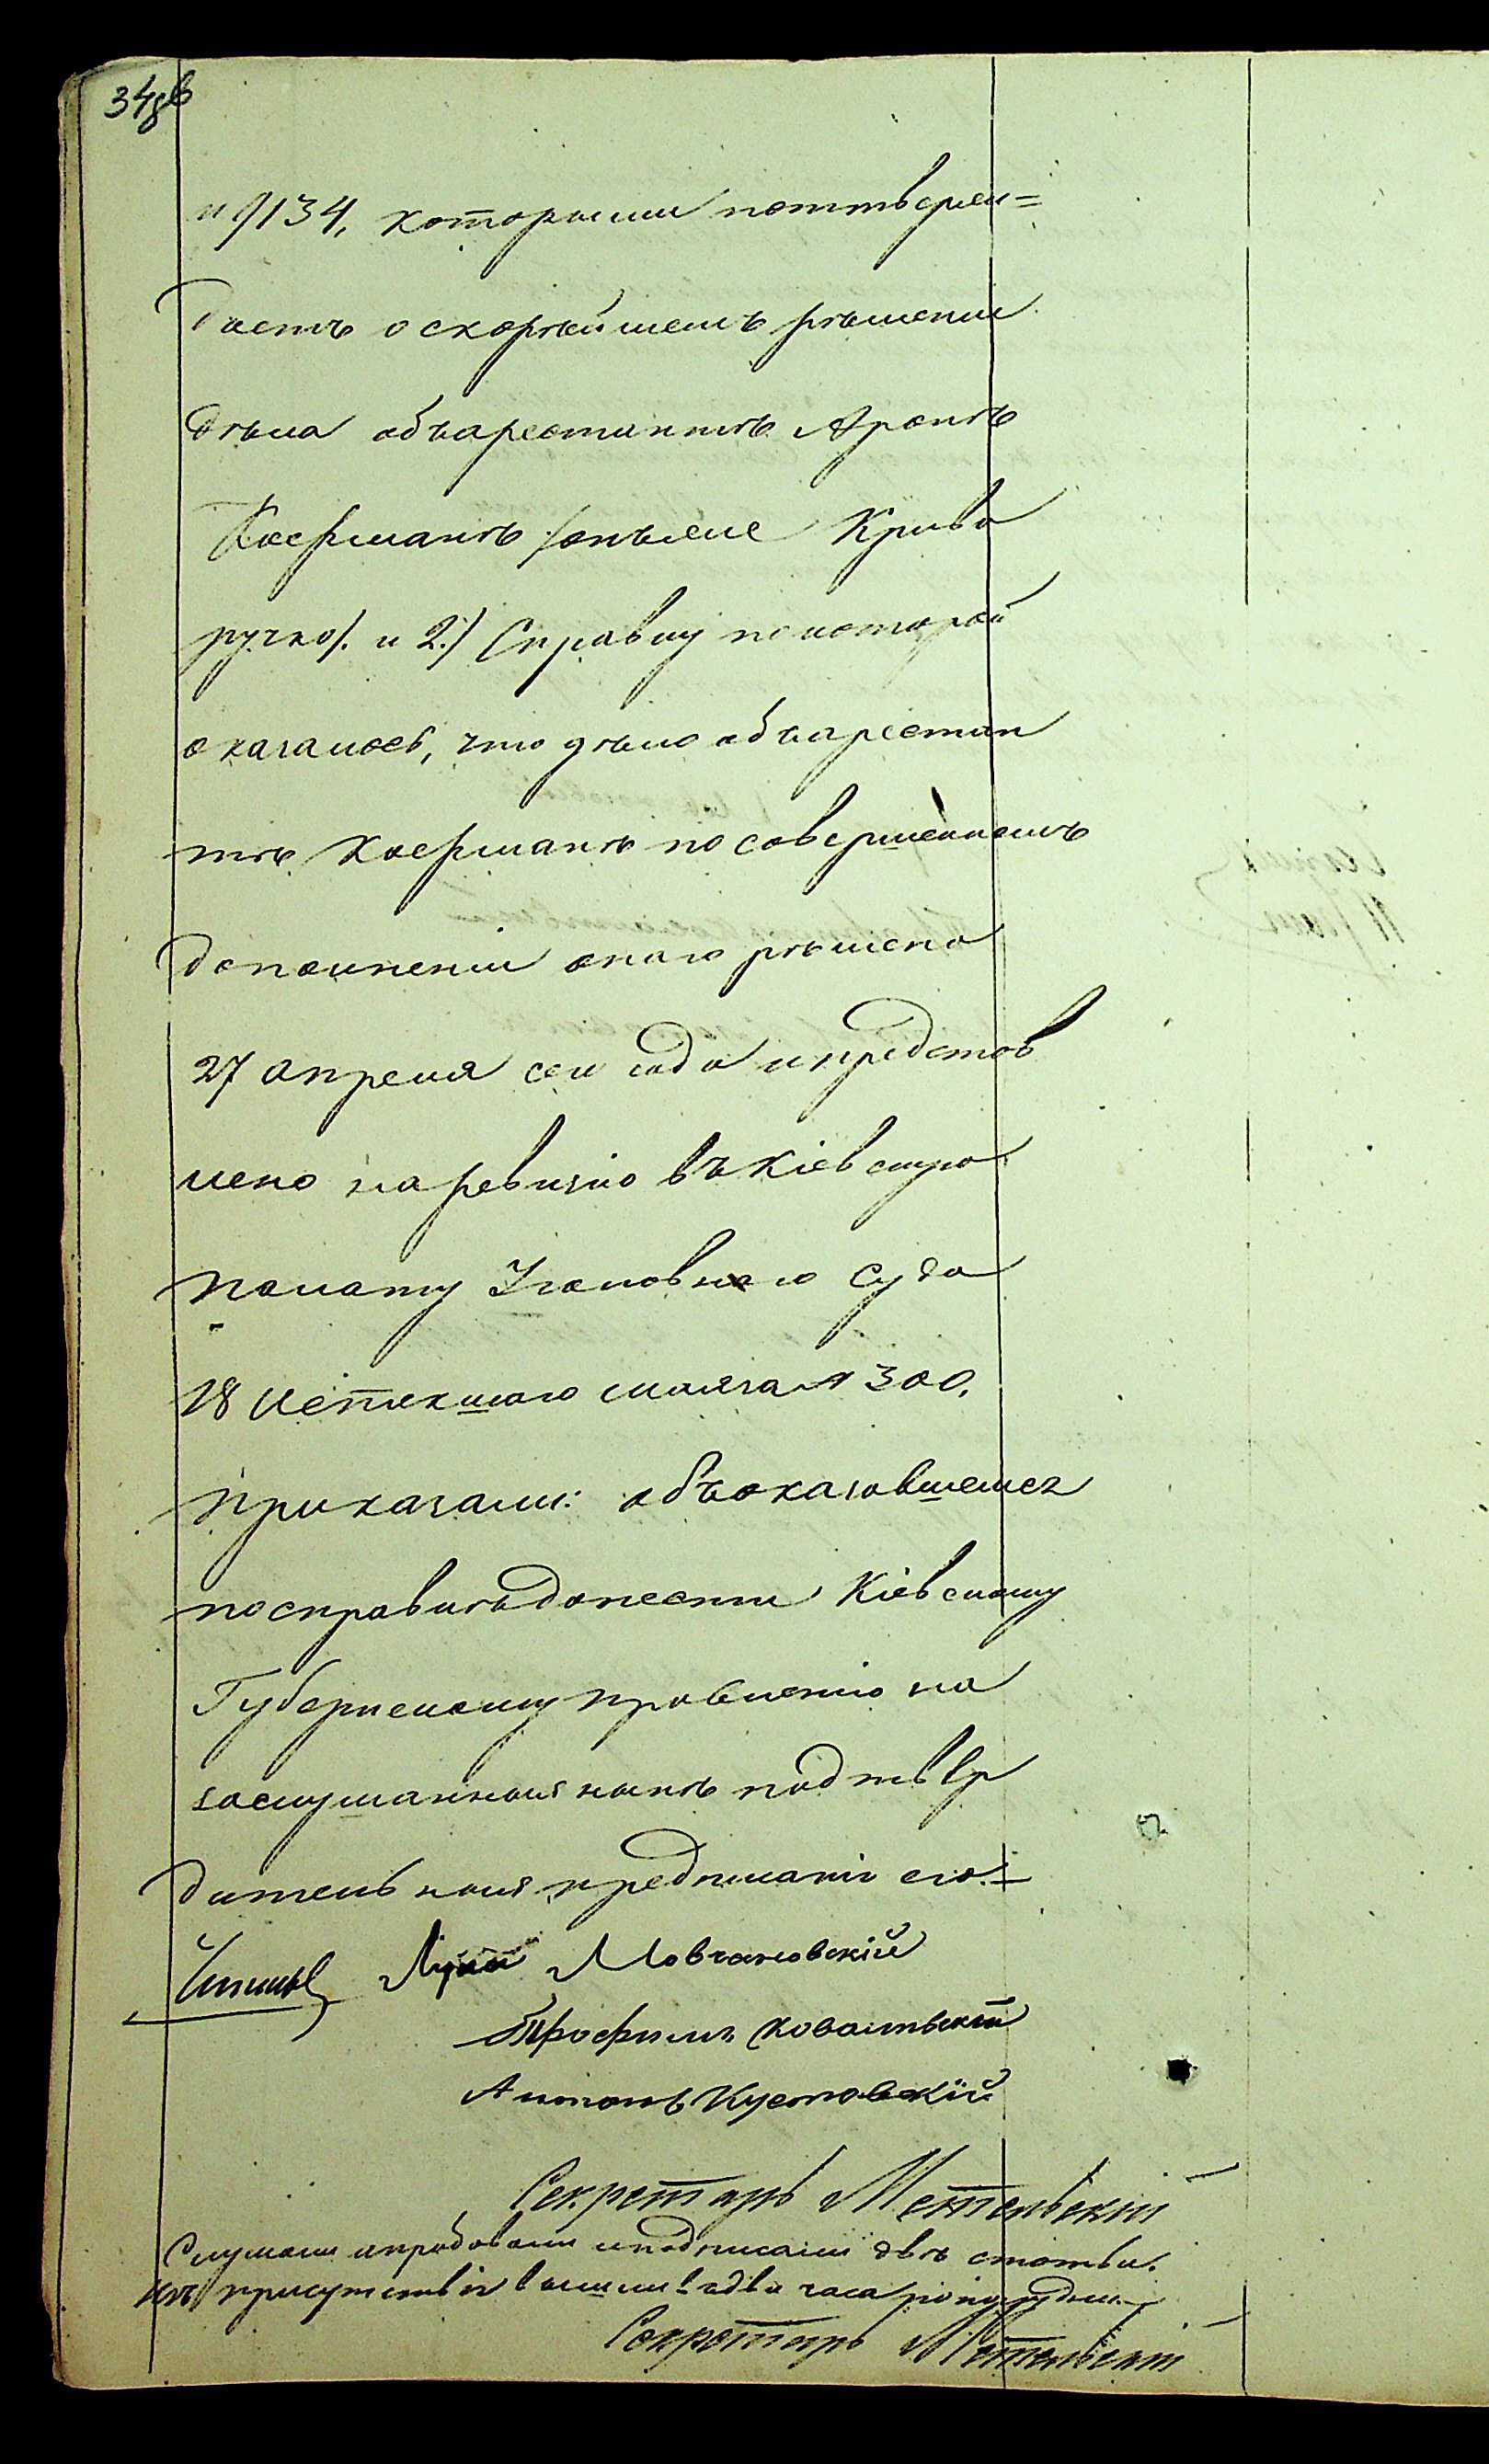 34 об
и 9134, которыми поттверж=
даетъ о скорѣйшемъ рѣшении
дѣла объарестантѣ Аронѣ
Косрманѣ /онъже Криво
ручко/. и 2.) Справку покоторой
оказалось, что дѣло объарестан
тѣ Косрманѣ по совершенномъ
дополненіи онаго рѣшено
27 апреля сего года и представ
лено на ревизію въ Кіевскую
палату Уголовнаго Суда
18 Истекшаго мая за № 300.
приказали: объоказавшемся
посправкѣ донести Кіевскому
Губернскому правленію на
заслушанныя нынѣ подтвер
дительныя предписанія его.
Лука Мовчановскій
Трофимъ Ковальскій
Антонъ Кустовскій
Секретарь Метельский
Слушали апробовали и подписали двѣ статьи.
изъ присутствія вышли въ два часа по полудни.
Секретарь Метельский